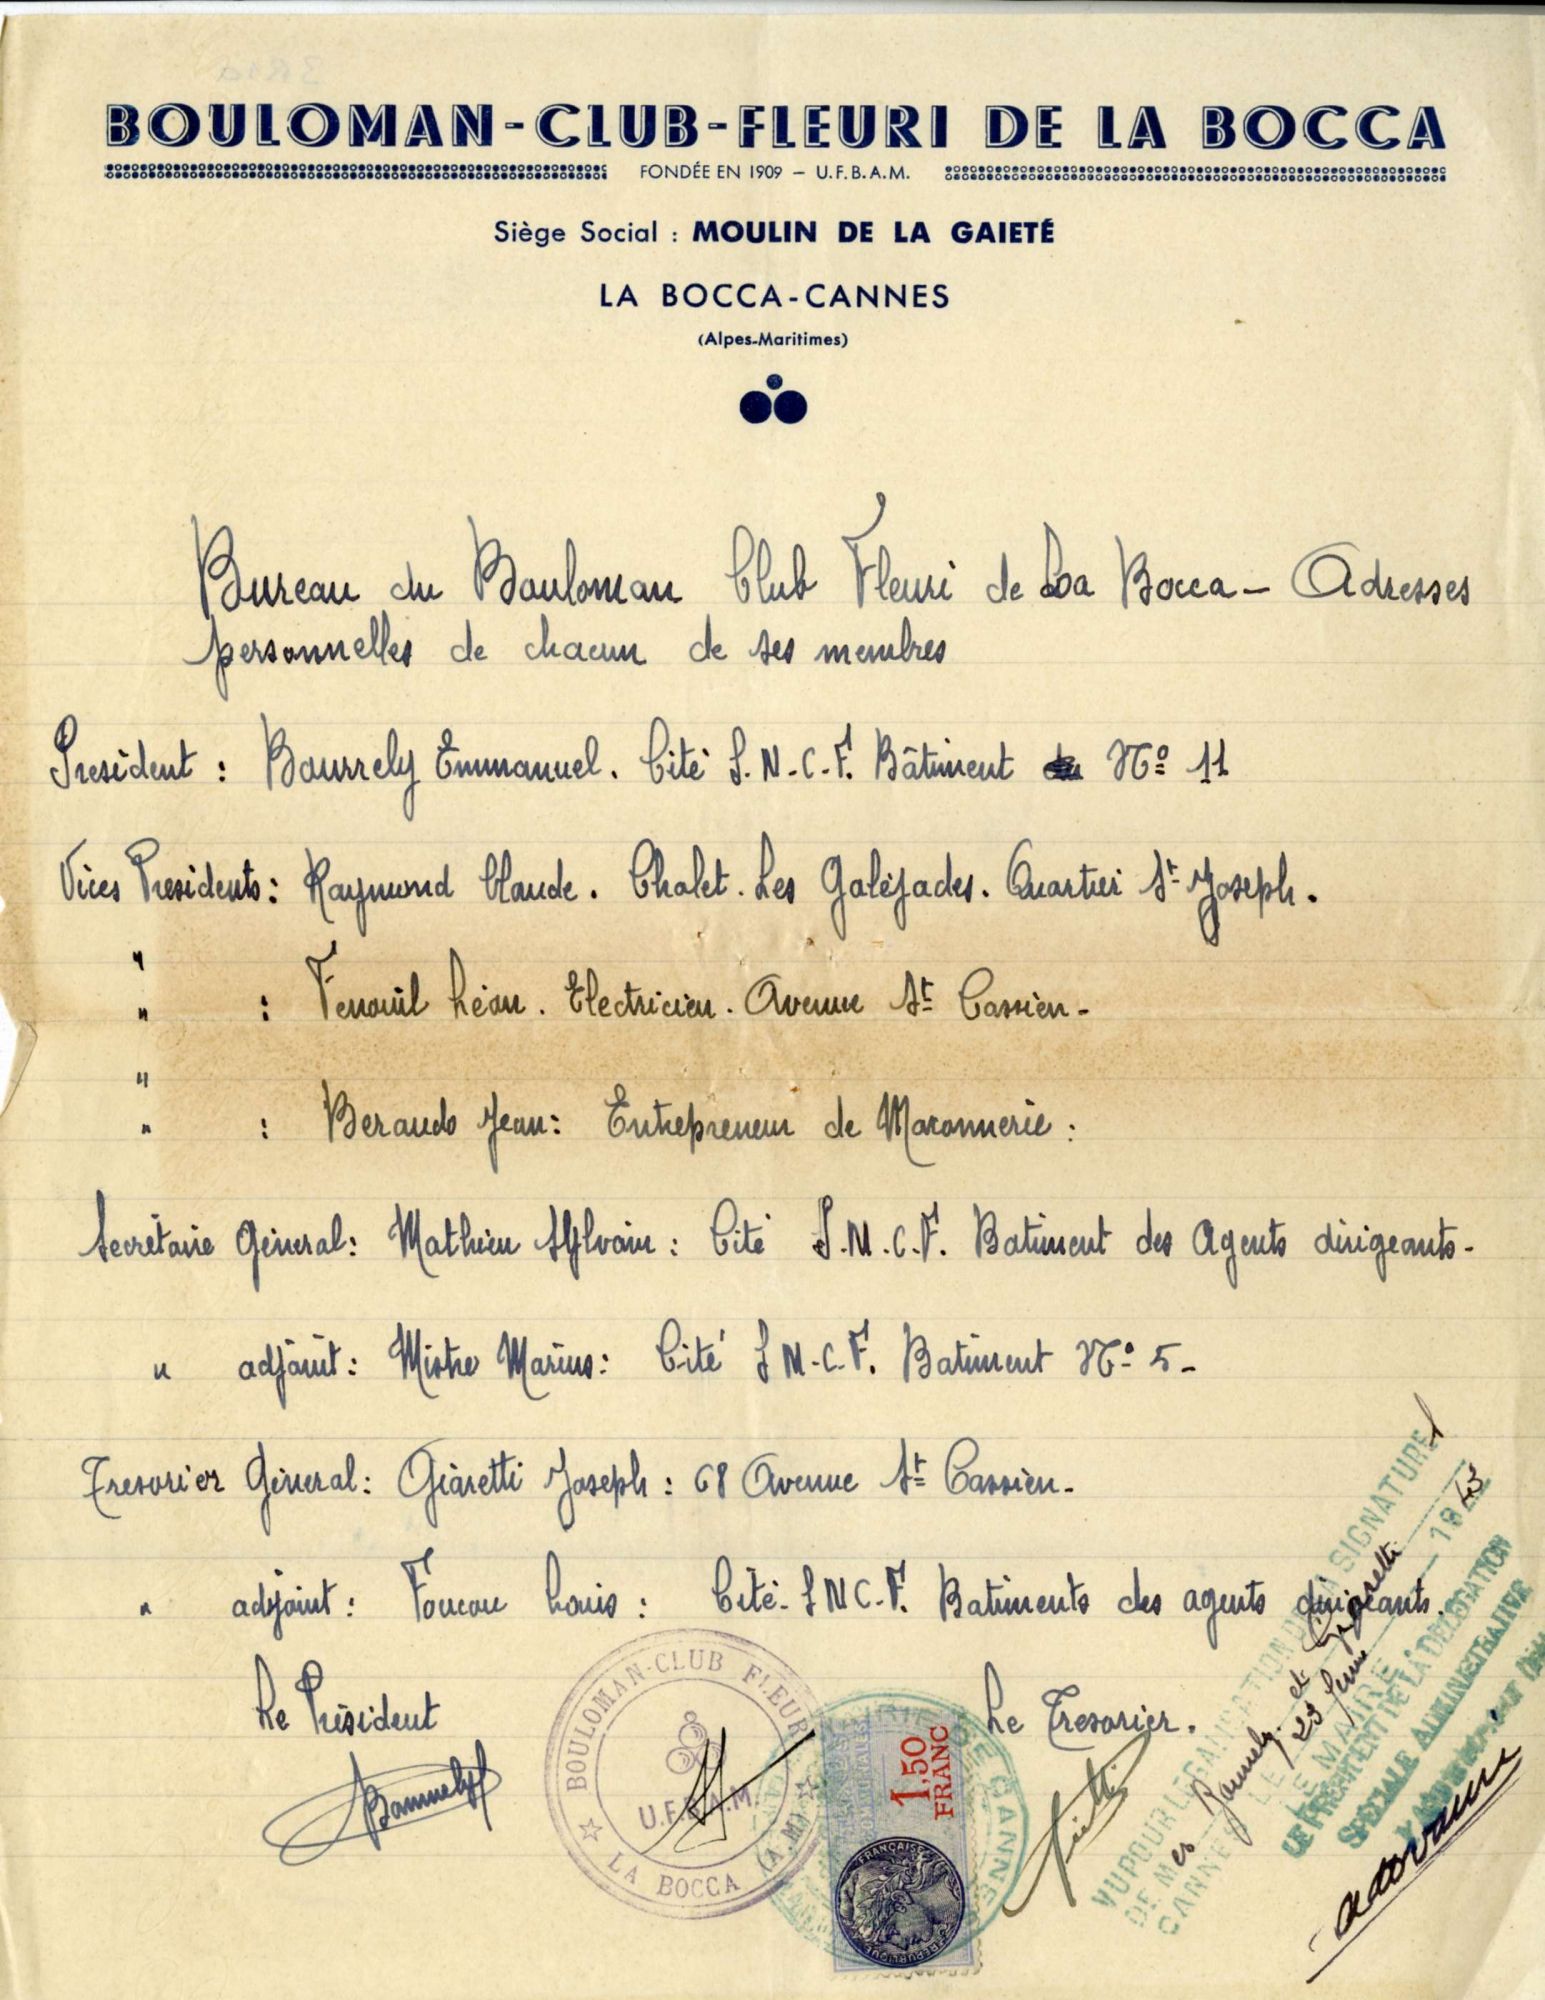 BOULOMAN-CLUB-FLEURI DE LA BOCCA
FONDÉE EN 1909 – U.F.B.A.M.
Siège Social : MOULIN DE LA GAIETÉ
LA BOCCA-CANNES
(Alpes-Maritimes)
Bureau du Bouloman Club Fleuri de La Bocca – Adresses
personnelles de chacun de ses membres
President : Bourrely Emmanuel. Cité S.N.C.F. Bâtiment No 11
Vices Presidents : Raymond Claude. Chalet. Les Galéjades. Quartier St Joseph.
" " : Fenouil Léon. Electricien. Avenue St Cassien-
" " : Beraudo Jean : Entrepreneur de Maconnerie :
Secrétaire Géneral : Mathieu Sylvain : Cité S.N.C.F. Batiment des Agents dirigeants-
" adjoint : Mistre Marius : Cité S N.C.F. Batiment No 5-
Tresorier Géneral : Giaretti Joseph : 68 Avenue St Cassien-
" adjoint : Foucou Louis : Cité- S N C.F. Batiments des agents dirigeants.
Le Président
Le Tresorier.
BOULOMAN-CLUB FLEURI
U.F.B.A.M.
LA BOCCA (A.M)
1,50
FRANC
CANNES
VU POUR LÉGALISATION DE LA SIGNATURE
DE Mes Bourrely et Giaretti
CANNES LE 23 Juin 1943
LE MAIRE
LE PRÉSIDENT DE LA DÉLÉGATION
SPÉCIALE ADMINISTRATIVE